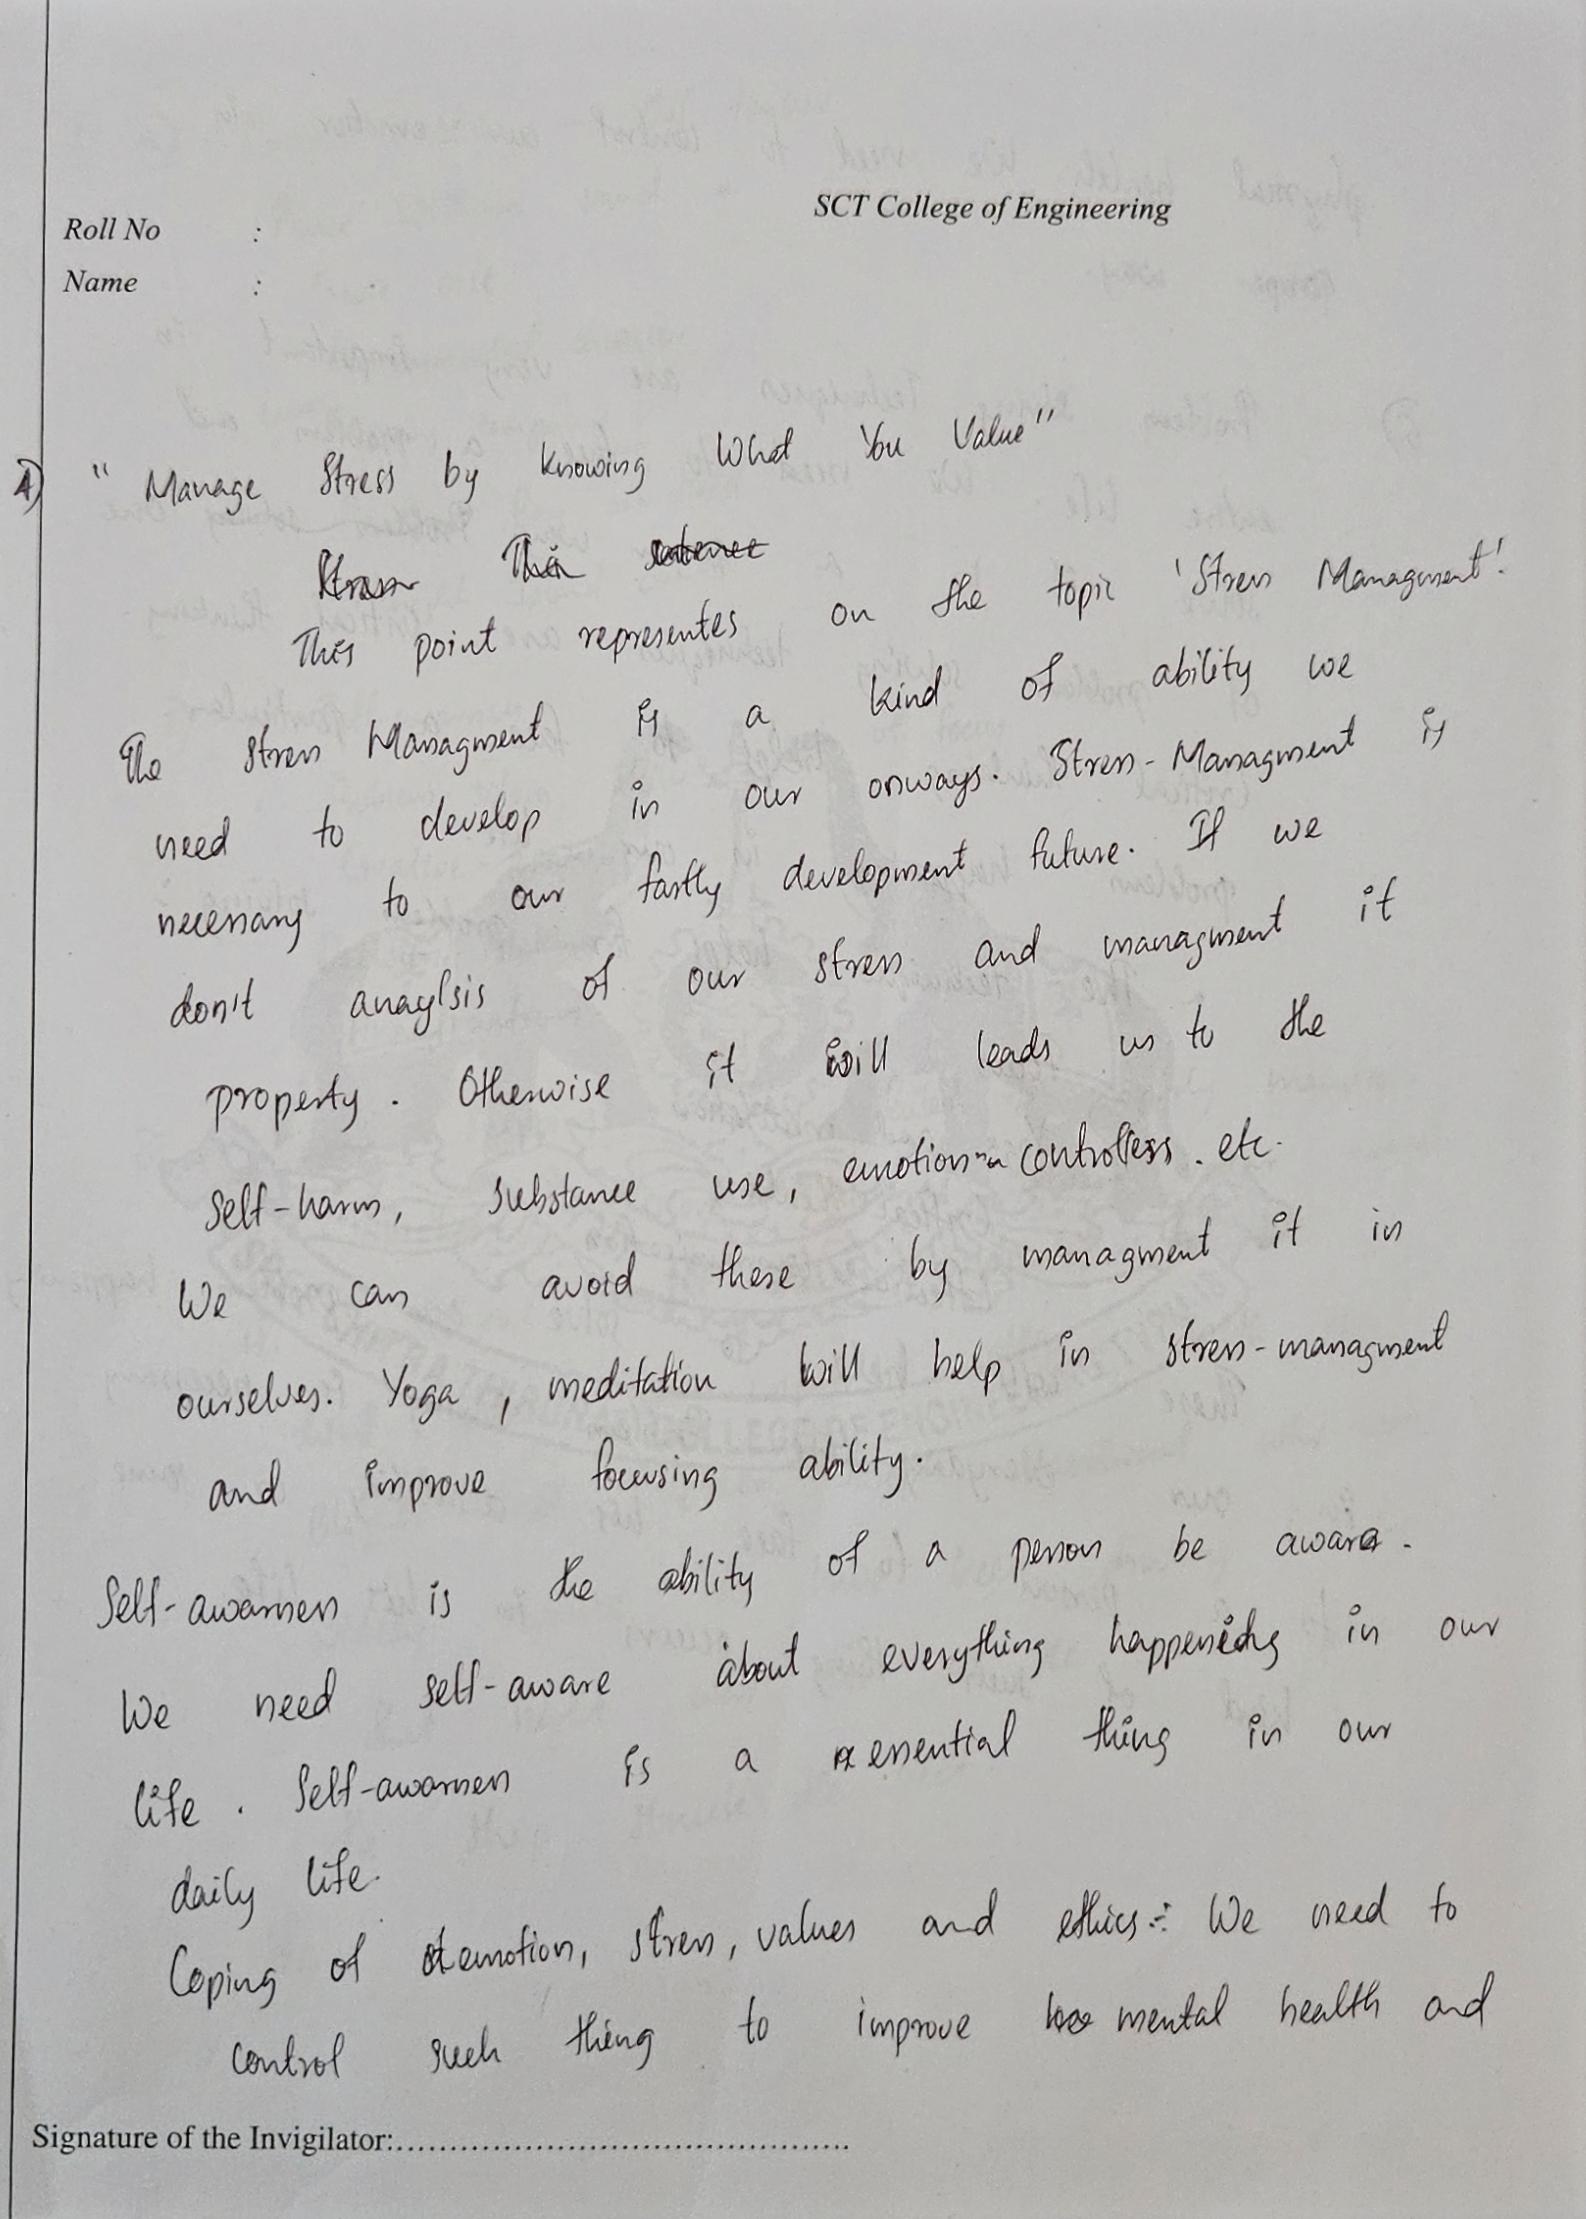 SCT College of Engineering
Roll No :
Name :
1) "Manage Stress by knowing What You Value"
This
This point representes on the topic 'Stress Managment'.
The stress Managment is a kind of ability we
need to develop in our onways. Stress-Managment is
necessary to our fastly development future. If we
don't anaylsis of our stress and managment it
property. Otherwise it will leads us to the
self-harm, substance use, emotion controlless. etc.
We can avoid these by managment it in
ourselves. Yoga, meditation will help in stress-managment
and improve focusing ability.
Self-awarness is the ability of a person be aware.
We need self-aware about everything happening in our
life. Self-awarness is a essential thing in our
daily life.
Coping of emotion, stress, values and ethics:- We need to
control such thing to improve mental health and
Signature of the Invigilator:.............................................